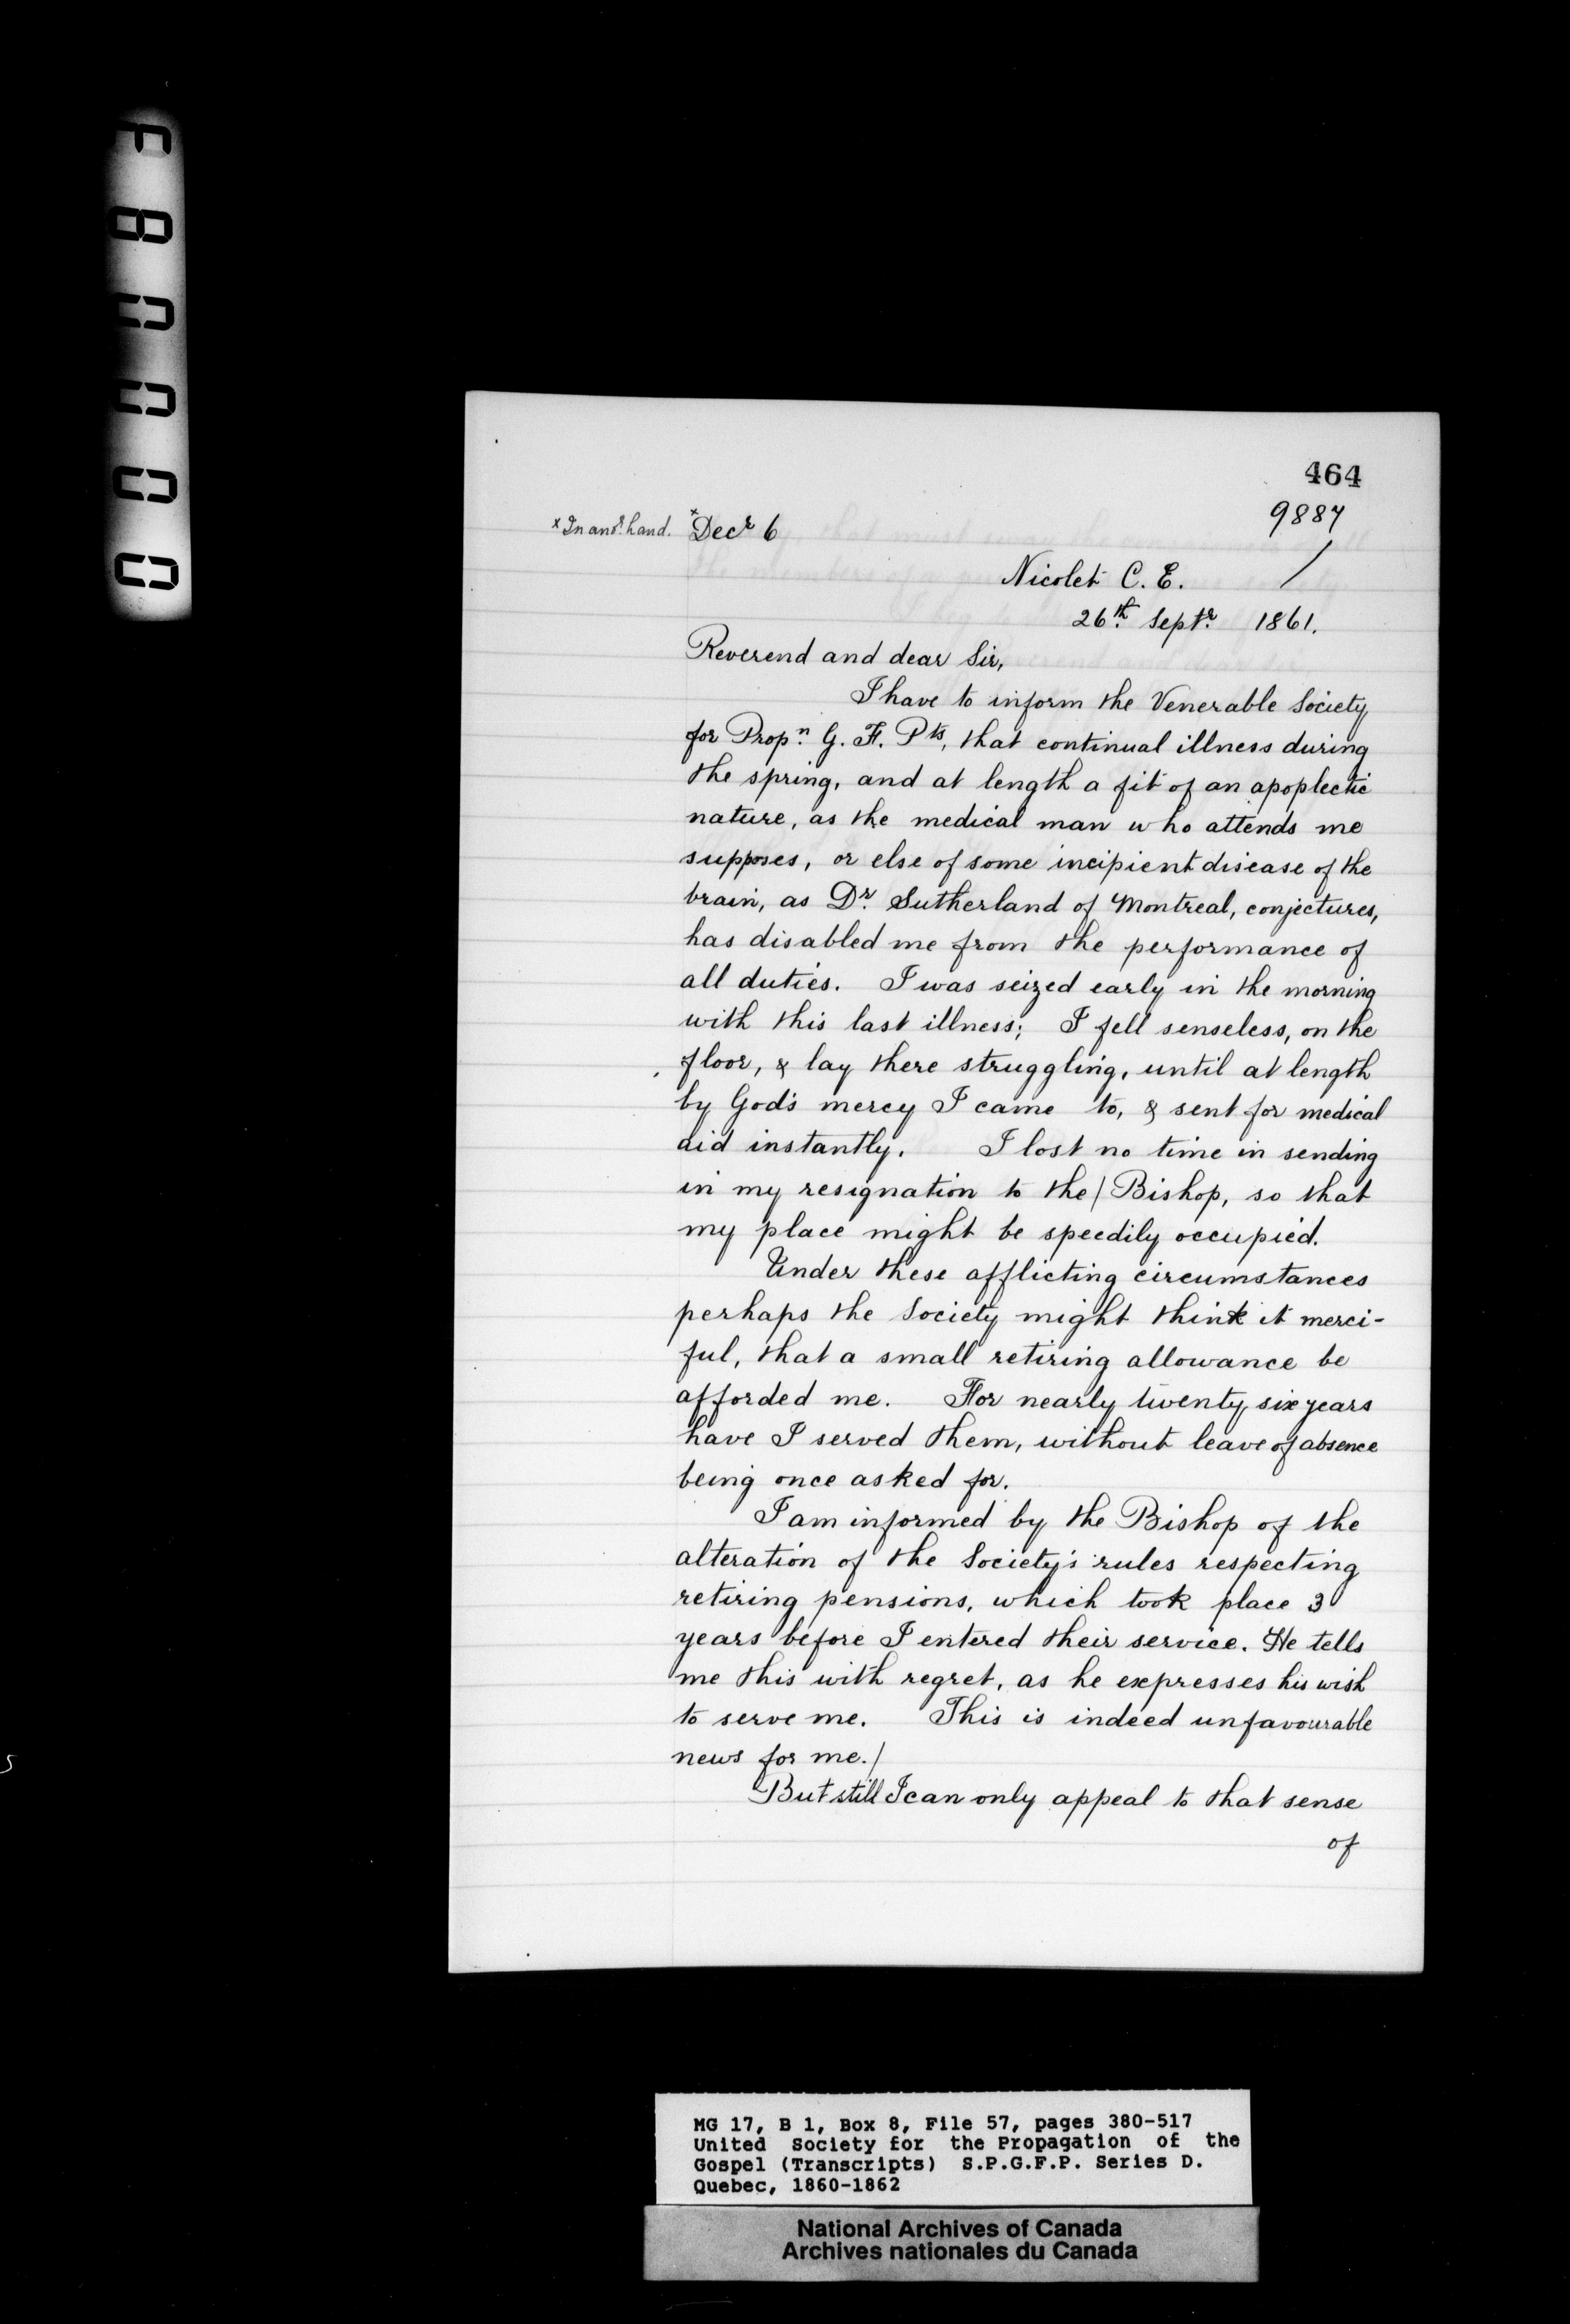 F80000
464
9887
× In anor. hand. ×Decr 6
/
Nicolet C. E.
26th. Septr. 1861.
Reverend and dear Sir,
I have to inform the Venerable Society
for Propn. G. F. Pts, that continual illness during
the spring, and at length a fit of an apoplectic
nature, as the medical man who attends me
supposes, or else of some incipient disease of the
brain, as Dr. Sutherland of Montreal, conjectures,
has disabled me from the performance of
all duties. I was seized early in the morning
with this last illness; I fell senseless, on the
floor, & lay there struggling, until at length
by God's mercy I came to, & sent for medical
aid instantly. I lost no time in sending
in my resignation to the / Bishop, so that
my place might be speedily occupied.
Under these afflicting circumstances
perhaps the Society might think it merci-
ful, that a small retiring allowance be
afforded me. For nearly twenty six years
have I served them, without leave of absence
being once asked for.
I am informed by the Bishop of the
alteration of the Society's rules respecting
retiring pensions, which took place 3
years before I entered their service. He tells
me this with regret, as he expresses his wish
to serve me. This is indeed unfavourable
news for me. /
But still I can only appeal to that sense
of
MG 17, B 1, Box 8, File 57, pages 380-517
United Society for the Propagation of the
Gospel (Transcripts) S.P.G.F.P. Series D.
Quebec, 1860-1862
National Archives of Canada
Archives nationales du Canada